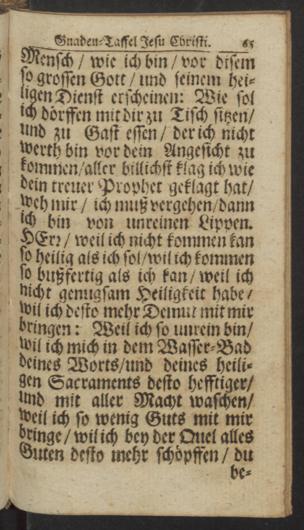 Gnaden-Taffel Jesu Christi. 65
Mensch / wie ich bin / vor disem
so grossen Gott / und seinem hei-
ligen Dienst erscheinen: Wie sol
ich dörffen mit dir zu Tisch sitzen/
und zu Gast essen / der ich nicht
werth bin vor dein Angesicht zu
kommen/aller billichst klag ich wie
dein treuer Prophet geklagt hat/
weh mir / ich muß vergehen/dann
ich bin von unreinen Lippen.
HErr / weil ich nicht kommen kan
so heilig als ich sol/wil ich kommen
so bußfertig als ich kan / weil ich
nicht genugsam Heiligkeit habe/
wil ich desto mehr Demut mit mir
bringen: Weil ich so unrein bin/
wil ich mich in dem Wasser-Bad
deines Worts/und deines heili-
gen Sacraments desto hefftiger/
und mit aller Macht waschen/
weil ich so wenig Guts mit mir
bringe / wil ich bey der Quel alles
Guten desto mehr schöpffen / du
be-